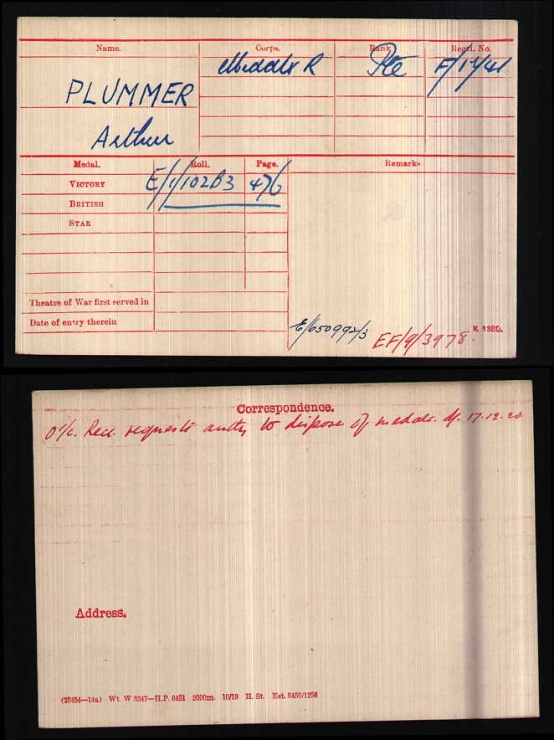 Name. Corps. Rank Regtl. No.
PLUMMER Middx R Pte
Arthur
Medal. Roll. Page. Remarks
VICTORY E/1/102B3 476
BRITISH
STAR
Theatre of War first served in
Date of entry therein
E/650992/3 EF/9/3978 K 1380.
Correspondence.
O i/c. Recs. requests authy to dispose of medals. d/. 17.12.20
Address.
(25454—14a) Wt. W 3347—H.P. 6451 2000m. 10/19 H. St. Est. 5450/1256